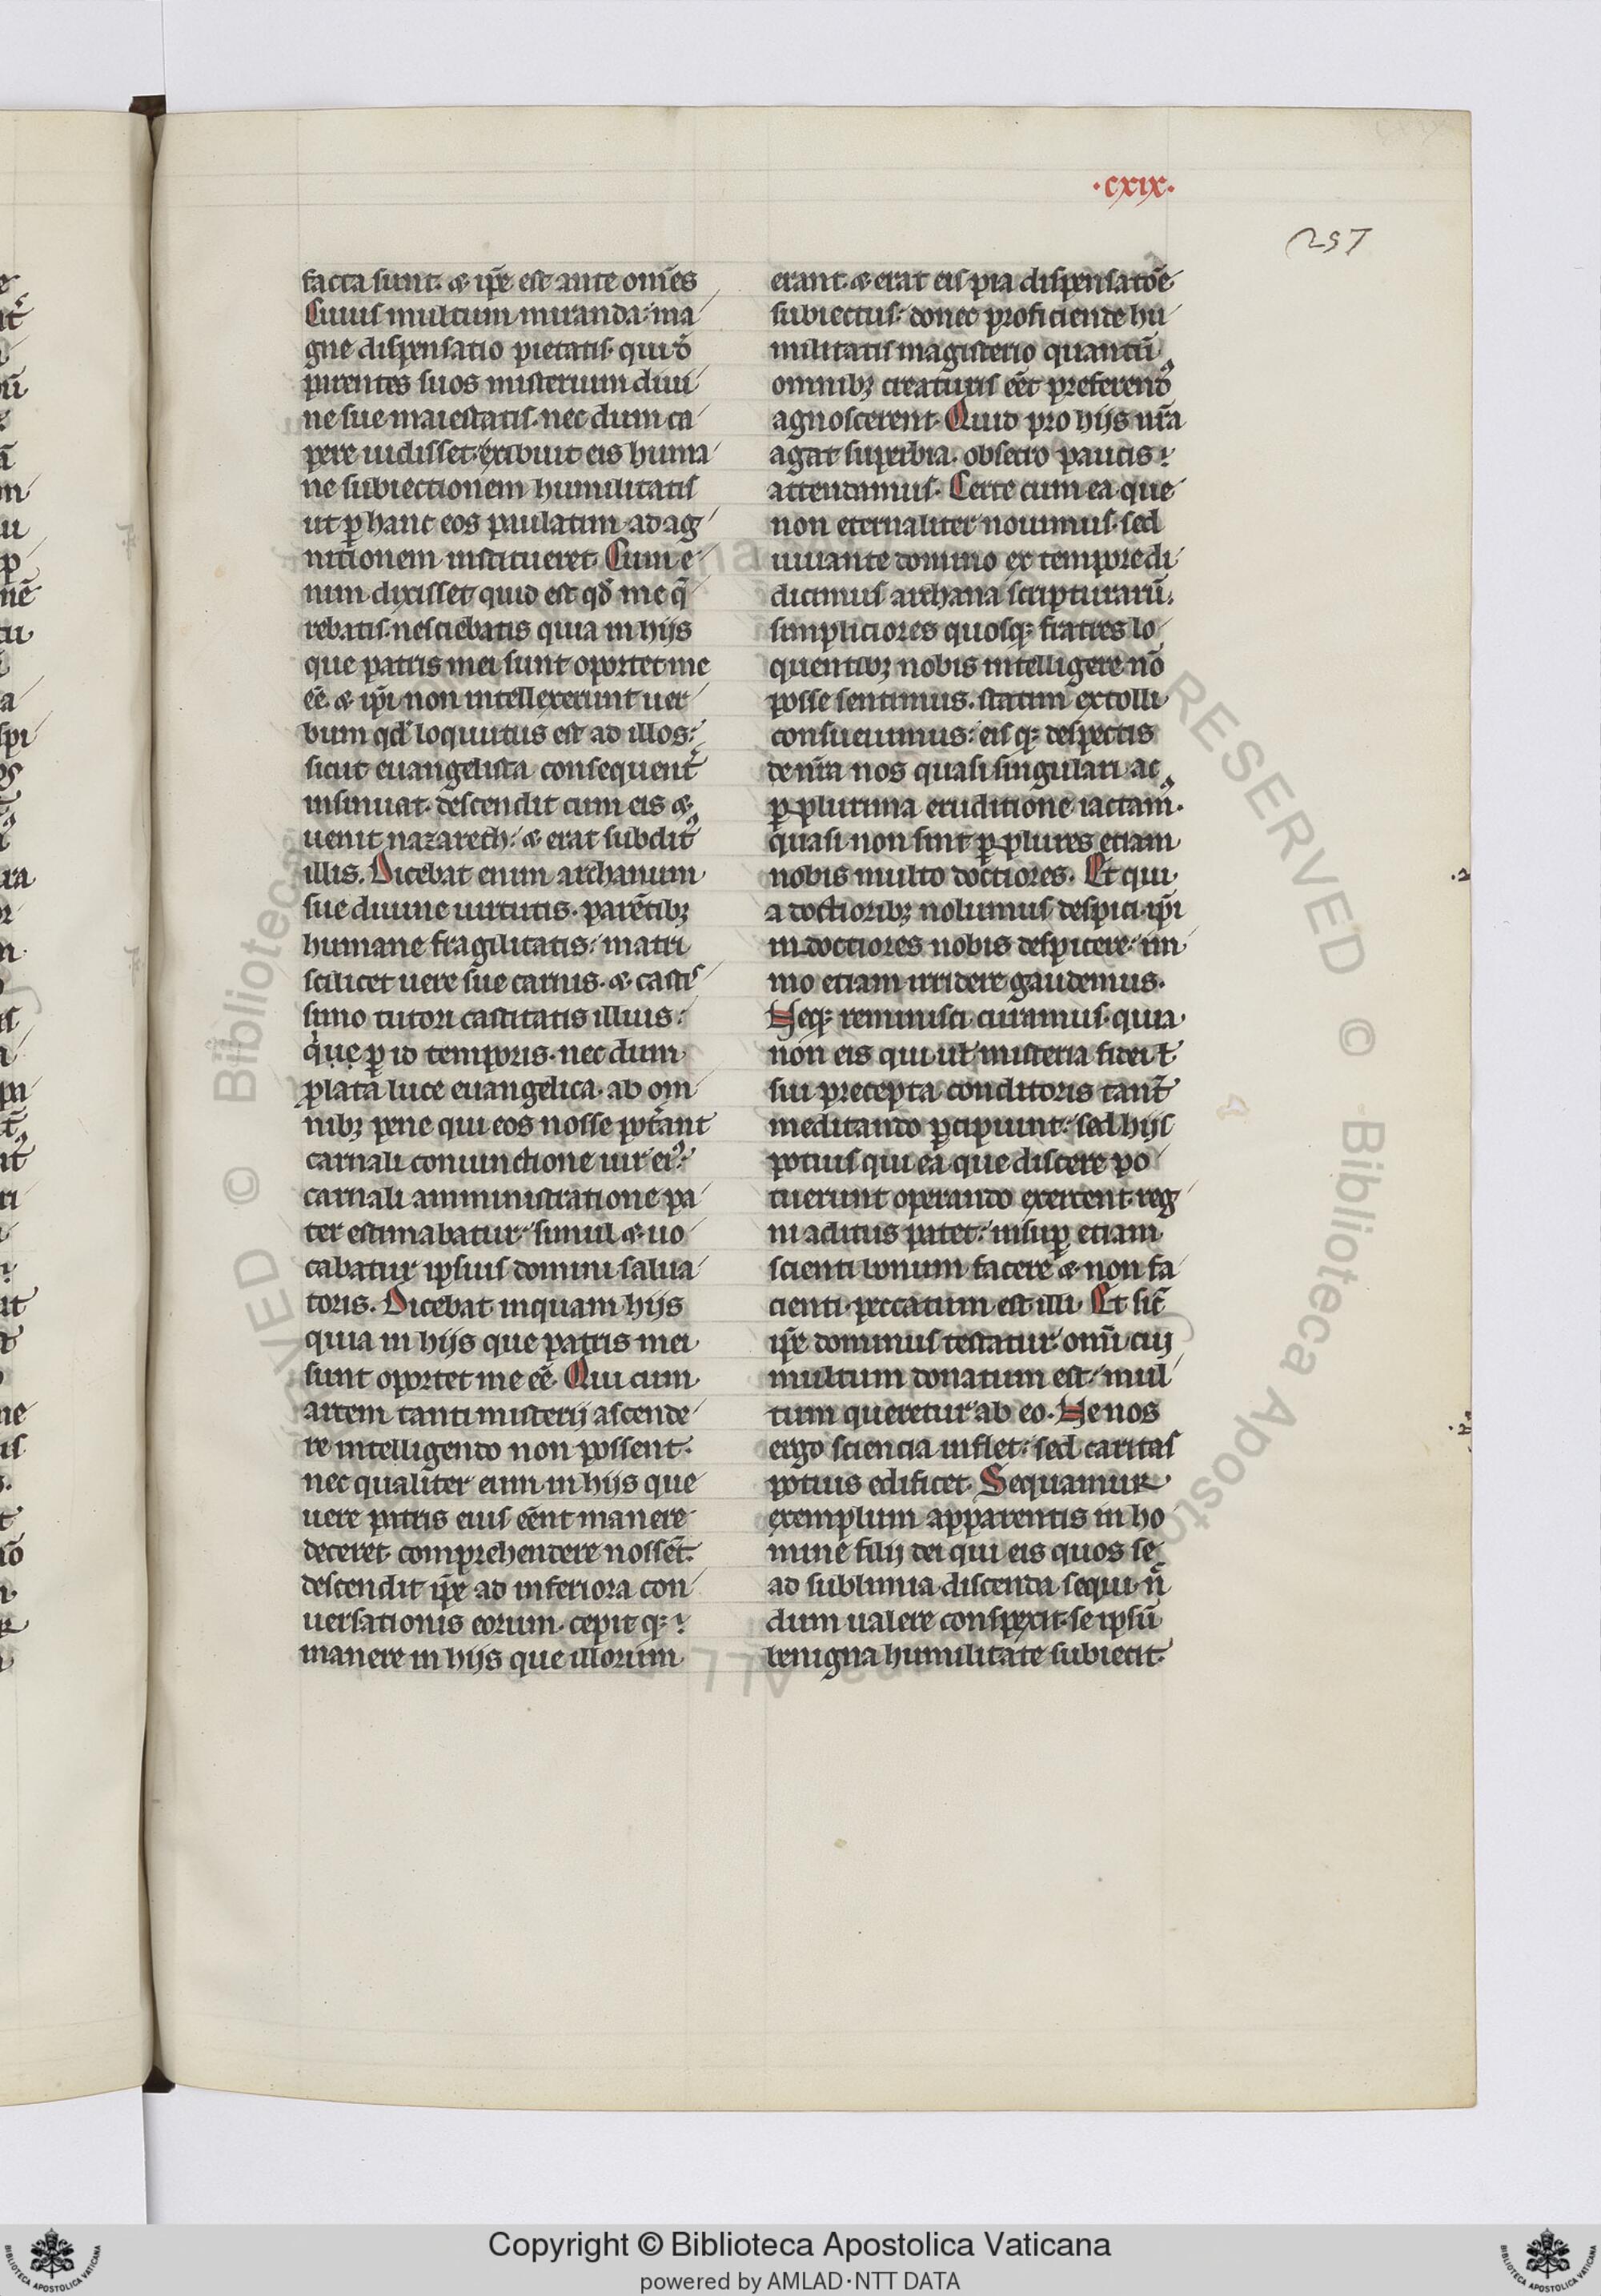 ·cxix·
257
facta sunt. ⁊ ip̄e est ante om̄es
Cuius multum miranda: ma
gne dispensatio pietatis. qui ō
parentes suos misterium diui
ne sue maiestatis. nec dum ca
pere uidisset: exibuit eis huma
ne subiectionem humilitatis
ut ꝑ hanc eos paulatim ad ag
nitionem institueret. Cum e
nim dixisset quid est qd̄ me q̄
rebatis. nesciebatis quia in hijs
que patris mei sunt oportet me
eē. ⁊ ip̄i non intellexerunt uer
bum qd̄ loquutus est ad illos:
sicut euangelista consequent̄
insinuat. descendit cum eis ⁊
uenit nazareth: ⁊ erat subditꝰ
illis. Dicebat enim archanum
sue diuine uirtutis. parētibꝫ
humane fragilitatis: matri
scilicet uere sue carnis. ⁊ casti
simo tutori castitatis illius:
ꝑ id temporis. nec dum
plata luce euangelica. ab om
nibꝫ pene qui eos nosse pot̄ant
carnali coniunctione uir eiꝰ:
carnali amministratione pa
ter estimabatur: simul ⁊ uo
cabatur ipsius domini salua
toris. Dicebat inquam hijs
quia in hijs que patris mei
sunt oportet me eē. Qui cum
artem tanti misterij ascende
re intelligendo non possent.
nec qualiter eum in hijs que
uere patris eius eēnt manere
deceret. comprehendere nossēt.
descendit ip̄e ad inferiora con
uersationis eorum. cepit qꝫ
manere in hijs que illorum
erant. ⁊ erat eis pia dispensatōe
subiectus: donec proficiente hu
militatis magisterio quantū
omnibꝫ creaturis eēt preferendꝰ
agnoscerent. Quid pro hijs nr̄a
agat superbia. obsecro paucis
attendamus. Certe cum ea que
non eternaliter nouimus. sed
iuuante domino ex tempore di
dicimus archana scripturarū.
simpliciores quosqꝫ fratres lo
quentibꝫ nobis intelligere nō
posse sentimus. statim extolli
consueuimus: eis qꝫ despectis
de nr̄a nos quasi singulari ac
ꝑ plurima eruditione iactamꝰ.
quasi non sint ꝑ plures etiam
nobis multo doctiores. Et qui
a doctioribꝫ nolumus despici. ip̄i
indoctiores nobis despicere: im
mo etiam irridere gaudemus.
Neqꝫ reminisci curamus. quia
non eis qui ul̄ misteria fidei l̄
sui precepta conditoris tant̄
meditando ꝑcipiunt: sed hijs
potius qui ea que discere po
tuerunt operando exercent. reg
ni aditus patet: insuꝑ etiam
scienti bonum facere ⁊ non fa
cienti. peccatum est illi. Et sic̄
ip̄e dominus testatur. om̄i cui
multum donatum est: mul
tum queretur ab eo. Ne nos
ergo sciencia inflet: sed caritas
potius edificet. Sequamur
exemplum apparentis in ho
mine filij dei qui eis quos se
ad sublimia discenda sequi. n̄
dum ualere conspexit. se ipsū
benigna humilitate subiecit.
Copyright © Biblioteca Apostolica Vaticana
powered by AMLAD·NTT DATA